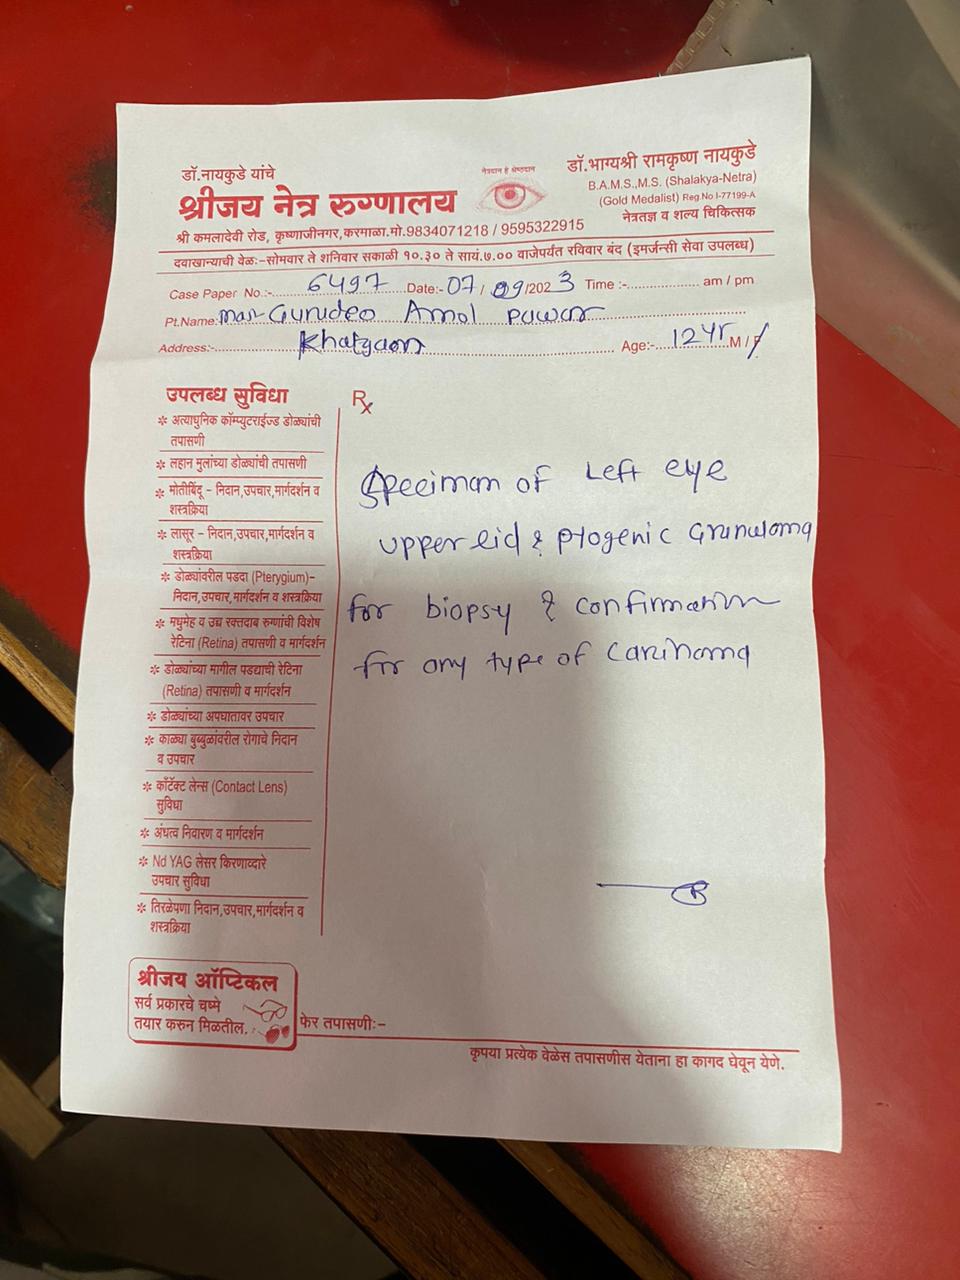 डॉ.नायकुडे यांचे
श्रीजय नेत्र रुग्णालय
नेत्रदान हे श्रेष्ठदान
डॉ.भाग्यश्री रामकृष्ण नायकुडे
B.A.M.S.,M.S. (Shalakya-Netra)
(Gold Medalist) Reg.No I-77199-A
नेत्रतज्ञ व शल्य चिकित्सक
श्री कमलादेवी रोड, कृष्णाजीनगर,करमाळा.मो.9834071218 / 9595322915
दवाखान्याची वेळ:-सोमवार ते शनिवार सकाळी १०.३० ते सायं.७.०० वाजेपर्यंत रविवार बंद (इमर्जन्सी सेवा उपलब्ध)
Case Paper No.:- 6497 Date:- 07/09/2023 Time :- am / pm
Pt.Name: mas Gurudeo Amol pawar
Address:- Khatgaon Age:- 12 yr M / F
उपलब्ध सुविधा
* अत्याधुनिक कॉम्प्युटराईज्ड डोळ्यांची
तपासणी
* लहान मुलांच्या डोळ्यांची तपासणी
* मोतीबिंदू - निदान,उपचार,मार्गदर्शन व
शस्त्रक्रिया
* लासूर - निदान,उपचार,मार्गदर्शन व
शस्त्रक्रिया
* डोळ्यांवरील पडदा (Pterygium)-
निदान,उपचार,मार्गदर्शन व शस्त्रक्रिया
* मधुमेह व उच्च रक्तदाब रुग्णांची विशेष
रेटिना (Retina) तपासणी व मार्गदर्शन
* डोळ्यांच्या मागील पडद्याची रेटिना
(Retina) तपासणी व मार्गदर्शन
* डोळ्यांच्या अपघातावर उपचार
* काळ्या बुब्बुळांवरील रोगाचे निदान
व उपचार
* कॉंटॅक्ट लेन्स (Contact Lens)
सुविधा
* अंधत्व निवारण व मार्गदर्शन
* Nd YAG लेसर किरणाव्दारे
उपचार सुविधा
* तिरळेपणा निदान,उपचार,मार्गदर्शन व
शस्त्रक्रिया
Rx
Speciman of Left eye
upper lid & ptogenic Granuloma
for biopsy & confirmation
for any type of Carinoma
श्रीजय ऑप्टिकल
सर्व प्रकारचे चष्मे
तयार करुन मिळतील.
फेर तपासणी:-
कृपया प्रत्येक वेळेस तपासणीस येताना हा कागद घेवून येणे.